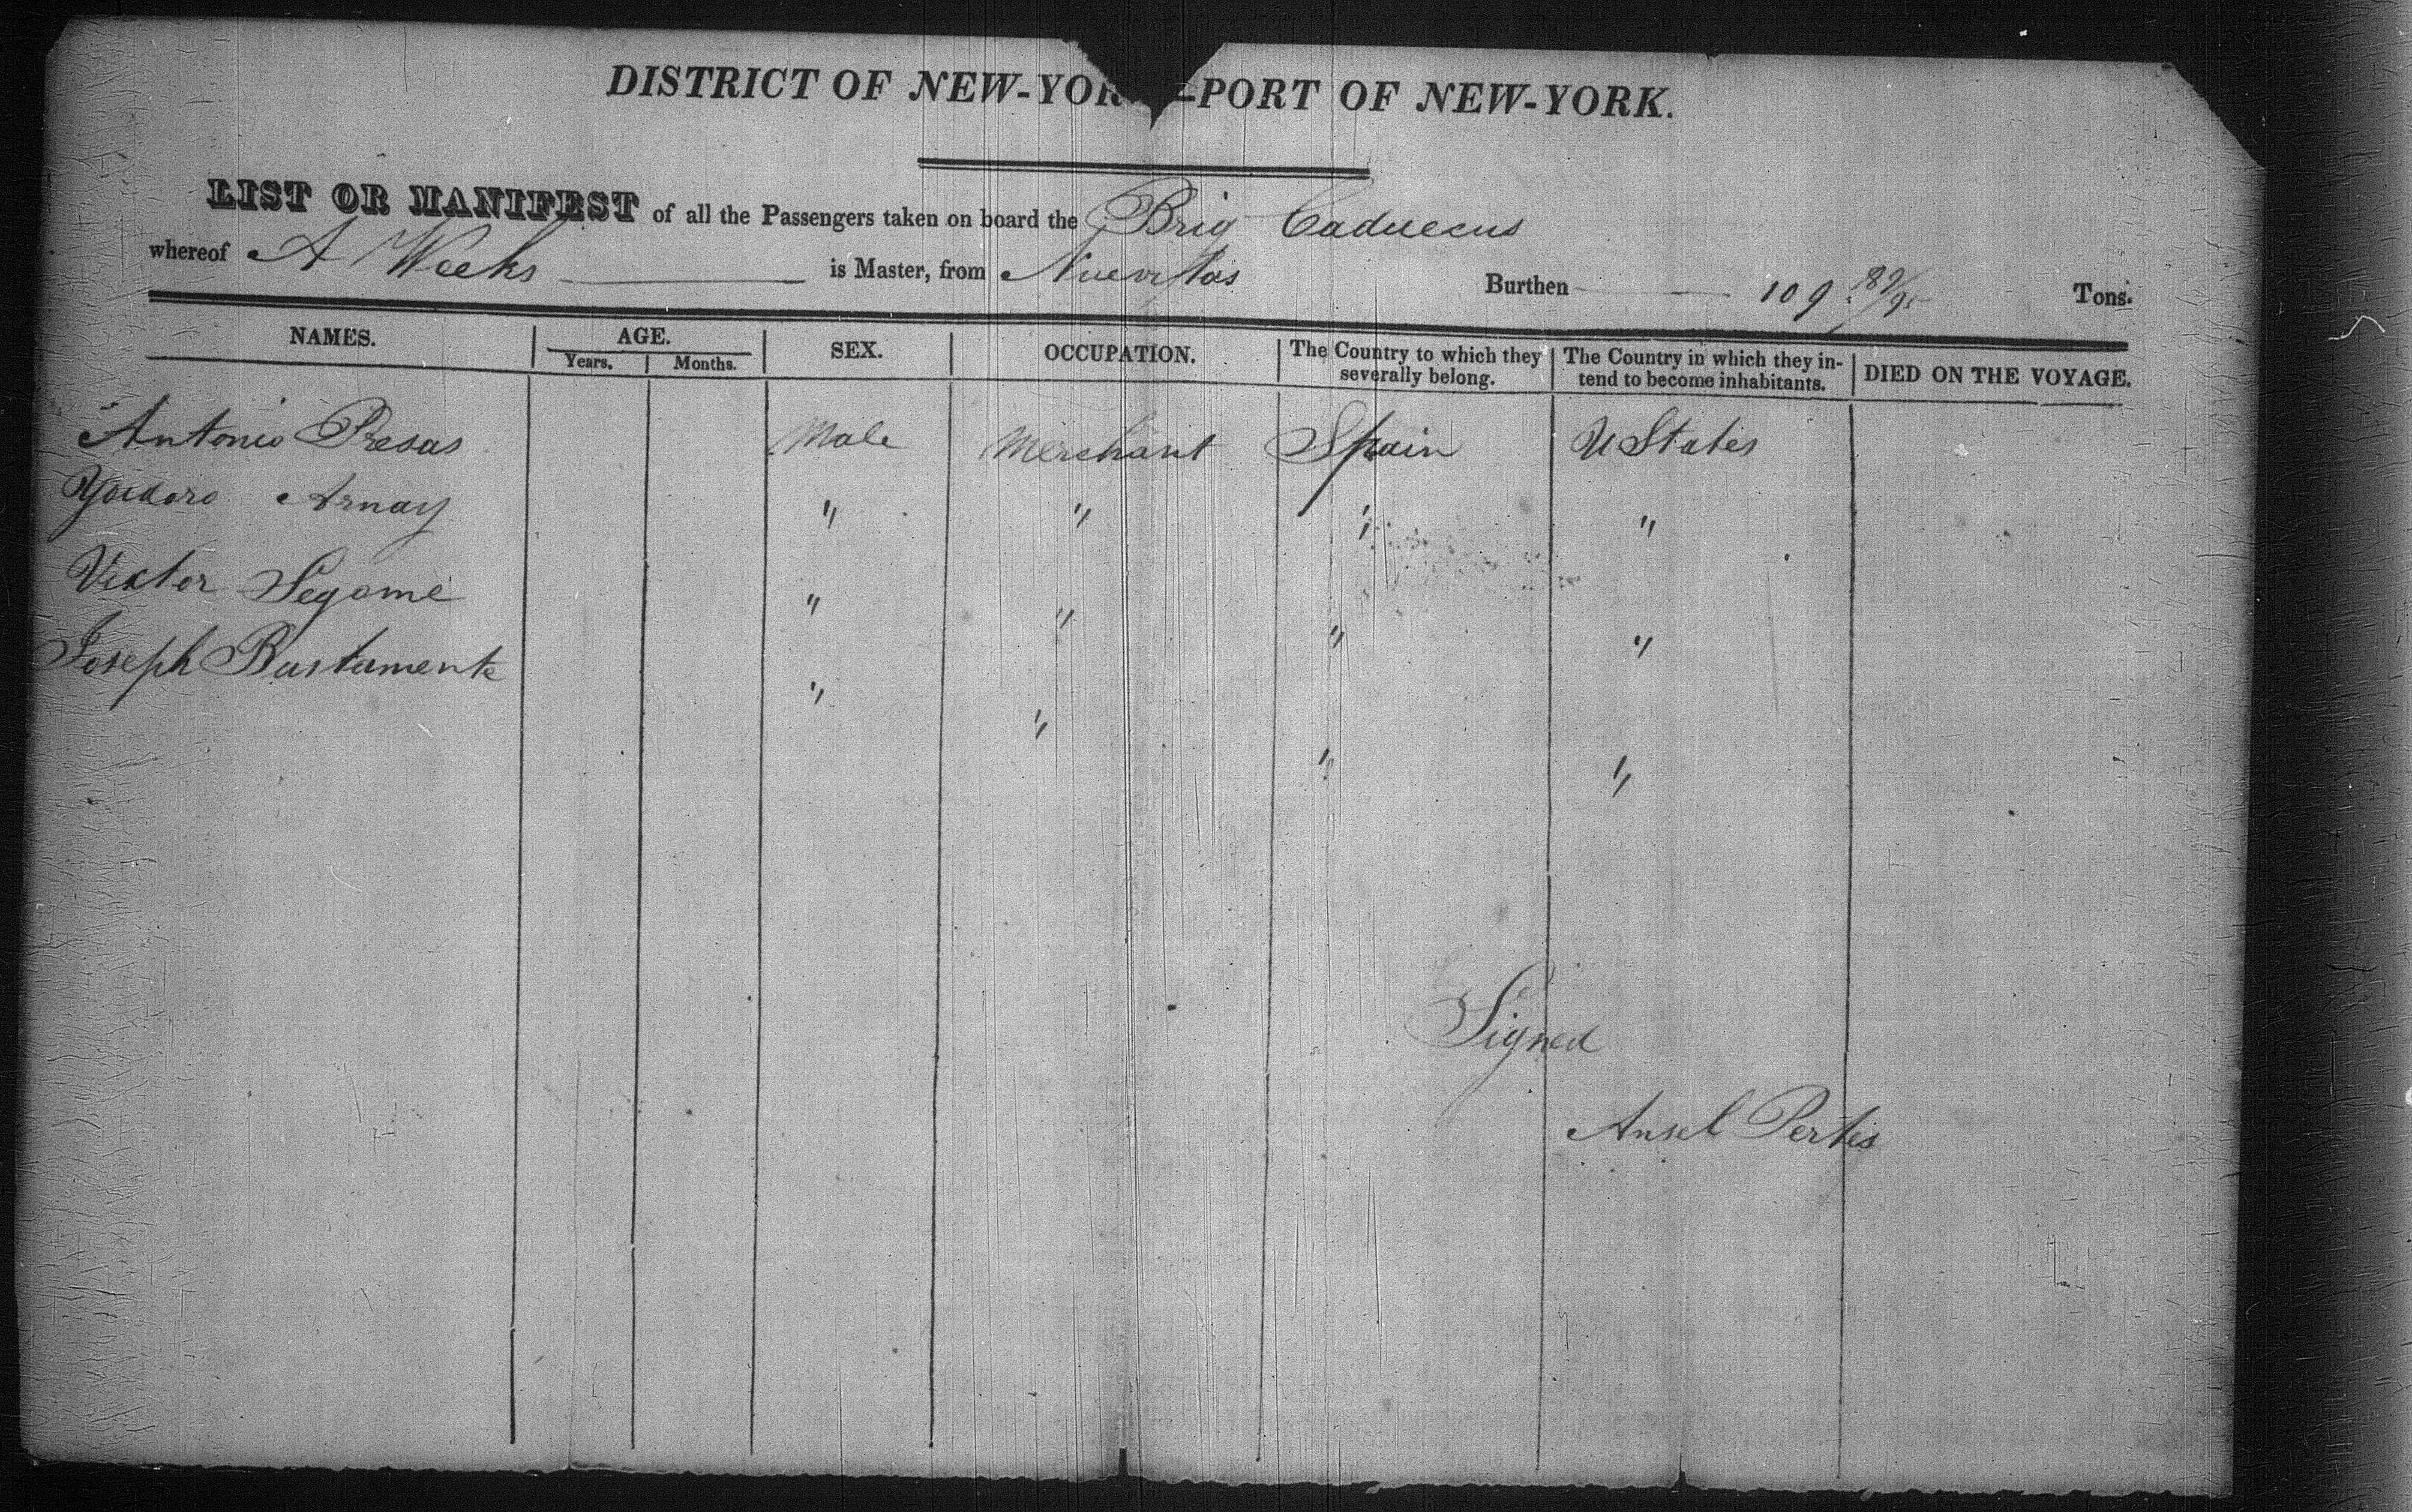 DISTRICT OF NEW-YOR -PORT OF NEW-YORK.
LIST OR MANIFEST of all the Passengers taken on board the Brig Caduceus
whereof A Weeks is Master, from Nuevitas Burthen 109 89/95 Tons.
NAMES. AGE. SEX. OCCUPATION. The Country to which they severally belong. The Country in which they intend to become inhabitants. DIED ON THE VOYAGE.
Years. Months.
Antonio Presas Male Merchant Spain U States
Ysidoro Arnay " " " "
Victor Segome " " " "
Joseph Bustamente " " " "
Signed
Ansel